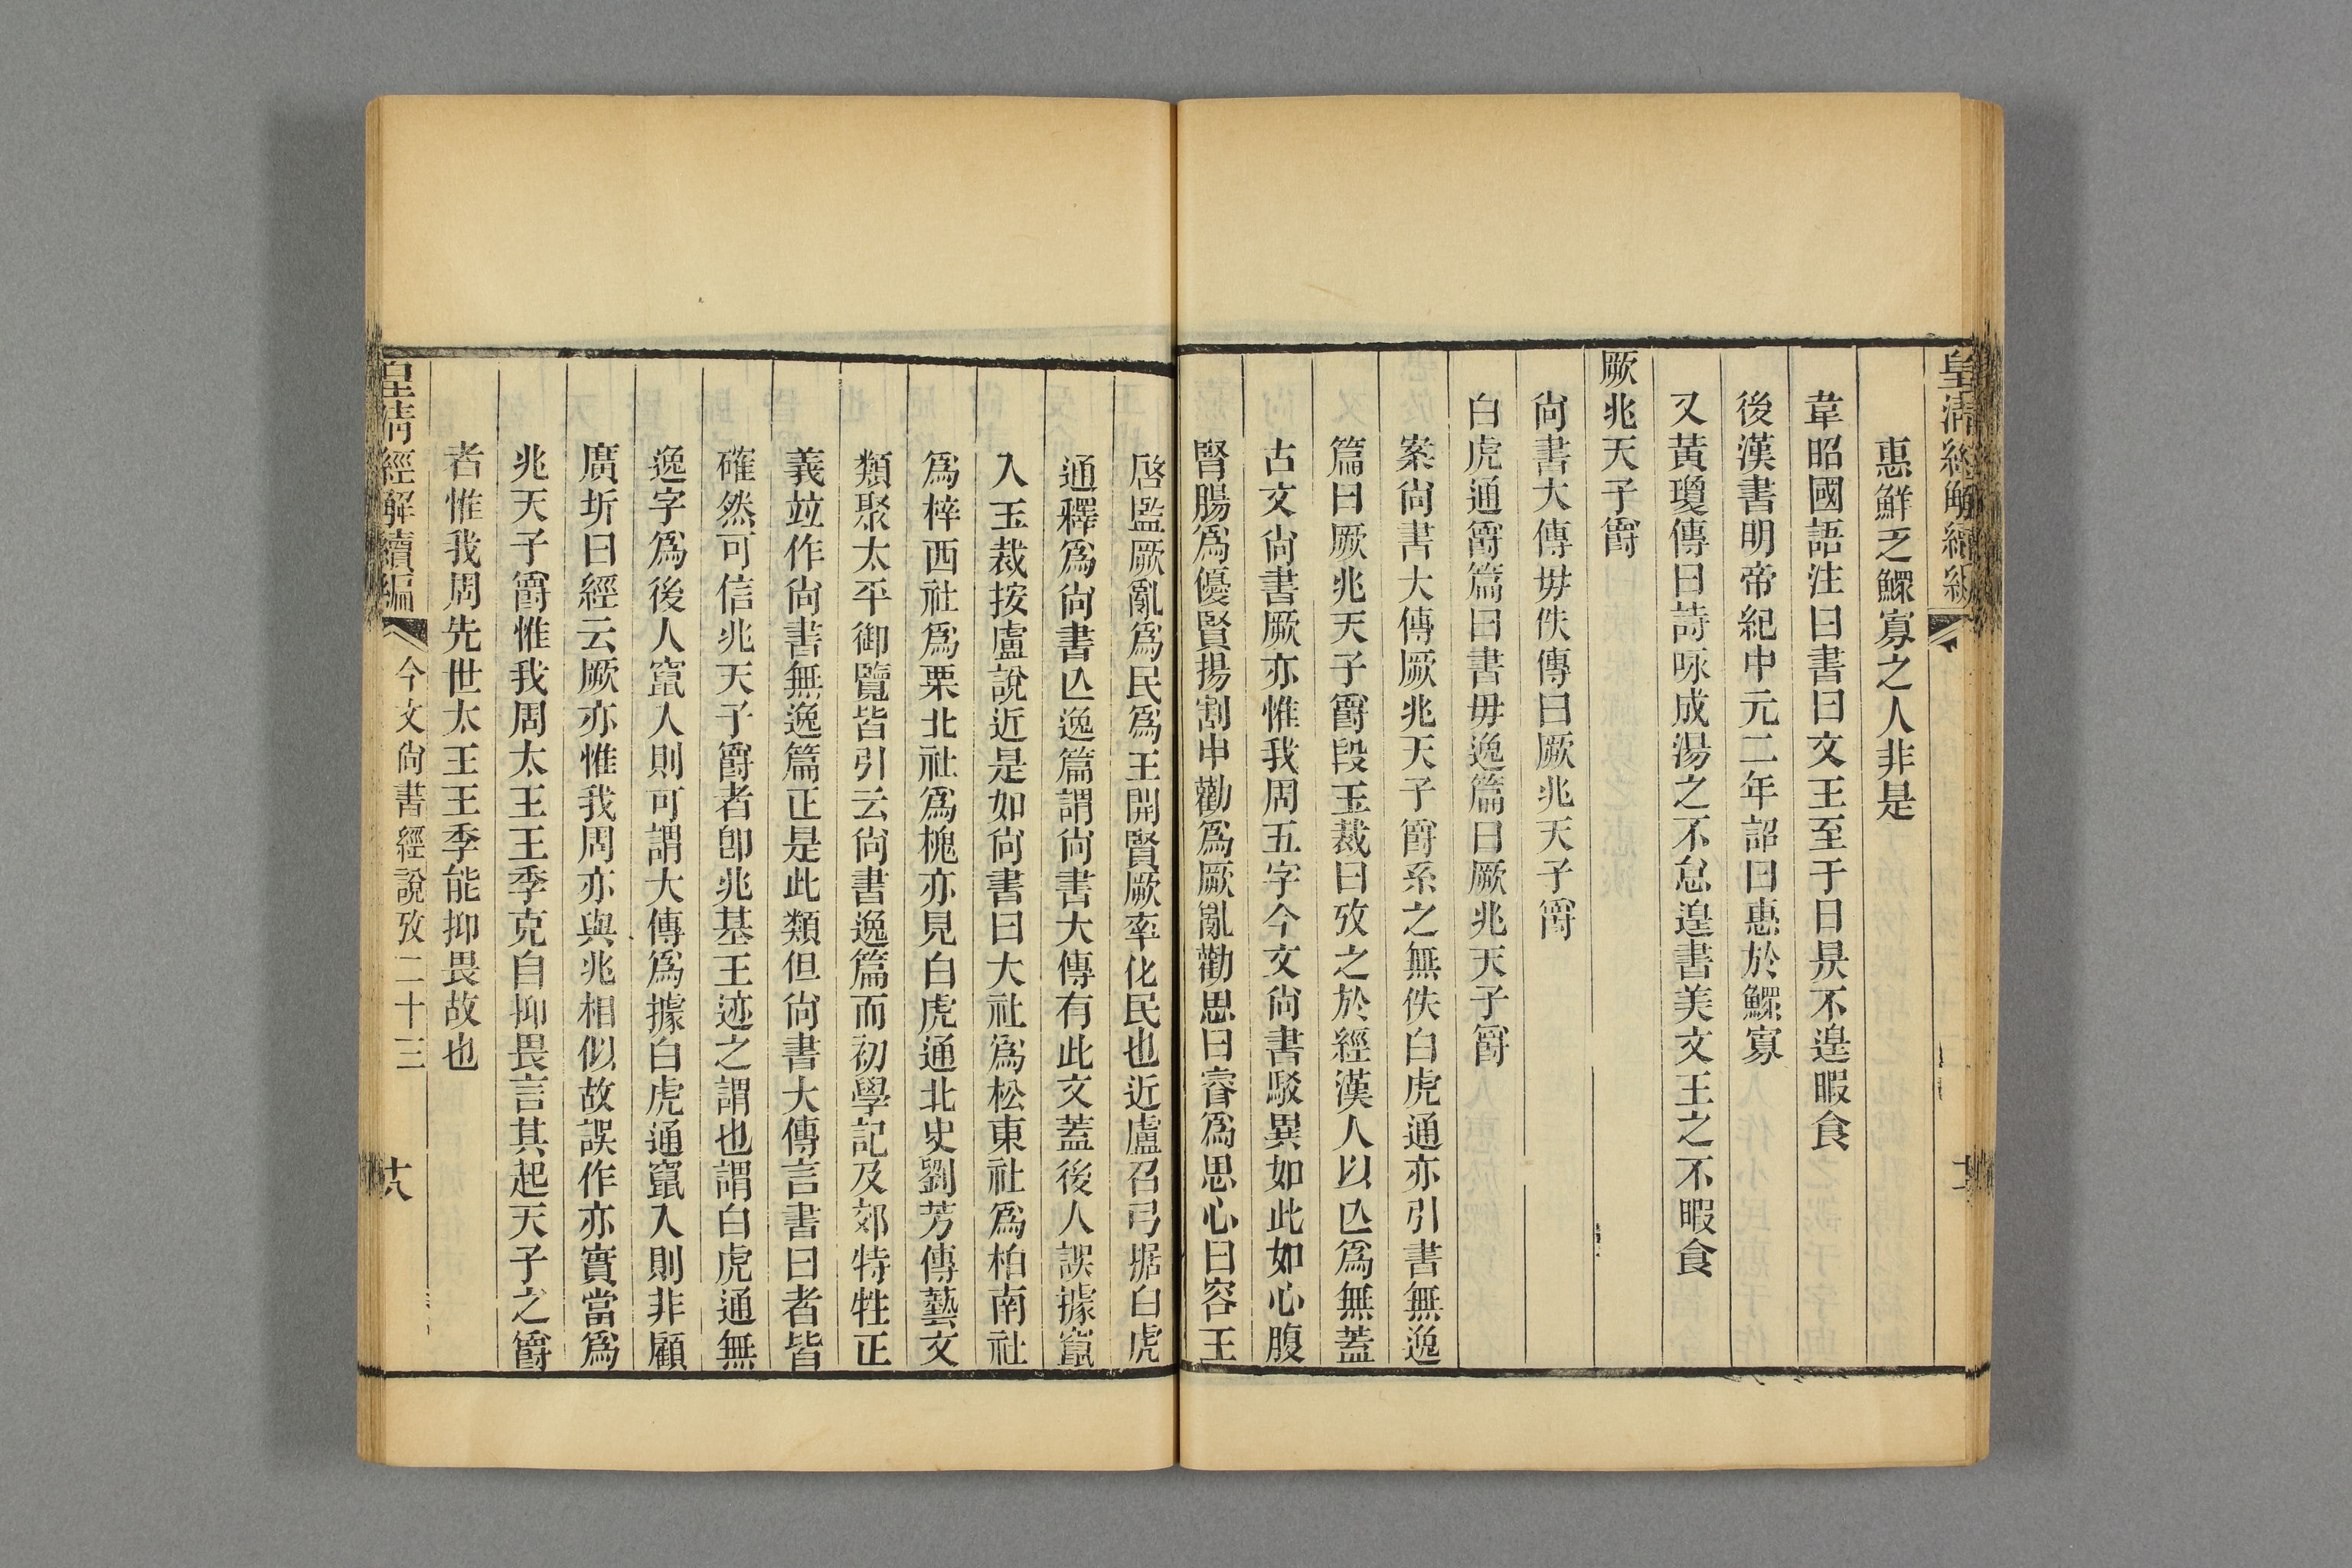 惠鮮乏鰥寡之人非是
韋昭國語注曰書曰文王至于日昃不遑暇食
後漢書明帝紀中元二年詔曰惠於鰥寡
又黃瓊傳曰詩咏成湯之不怠遑書美文王之不暇食
厥兆天子爵
尙書大傳毋佚傳曰厥兆天子爵
白虎通爵篇曰書毋逸篇曰厥兆天子爵
案尙書大傳厥兆天子爵系之無佚白虎通亦引書無逸
篇曰厥兆天子爵段玉裁曰攷之於經漢人以亾爲無蓋
古文尙書厥亦惟我周五字今文尙書駁異如此如心腹
腎腸爲優賢揚割申勸爲厥亂勸思曰睿爲思心曰容王
啓監厥亂爲民爲王開賢厥率化民也近盧召弓据白虎
通釋爲尙書亾逸篇謂尙書大傳有此文蓋後人誤據竄
入玉裁按盧說近是如尙書曰大社爲松東社爲柏南社
爲梓西社爲栗北社爲槐亦見白虎通北史劉芳傳藝文
類聚太平御覽皆引云尙書逸篇而初學記及郊特牲正
義竝作尙書無逸篇正是此類但尙書大傳言書曰者皆
確然可信兆天子爵者卽兆基王迹之謂也謂白虎通無
逸字爲後人竄入則可謂大傳爲據白虎通竄入則非顧
廣圻曰經云厥亦惟我周亦與兆相似故誤作亦實當爲
兆天子爵惟我周太王王季克自抑畏言其起天子之爵
者惟我周先世太王王季能抑畏故也
皇淸經解續編 今文尙書經說攷二十三 十八